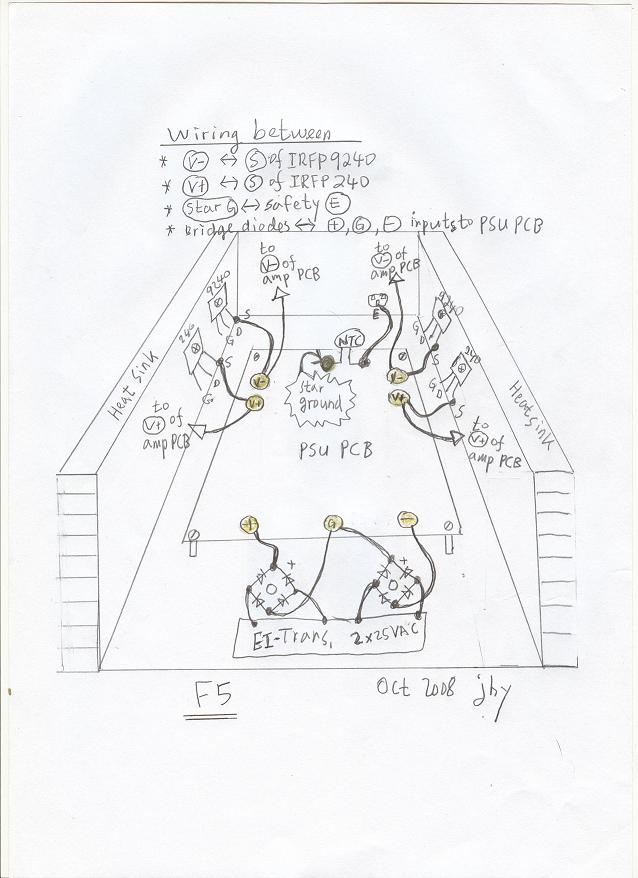 Wiring between
* V- ↔ S of IRFP9240
* V+ ↔ S of IRFP240
* Star G ↔ safety E
* Bridge diodes ↔ +, G, - inputs to PSU PCB
to
V- of
amp PCB
to
V- of
amp PCB
9240
S
D
G
240
S
D
G
E
NTC
9240
G
D
S
240
G
D
S
Heat Sink
Heat Sink
V-
V+
V-
V+
Star
ground
to
V+ of
amp PCB
to
V+ of
amp PCB
PSU PCB
+
G
-
+
+
EI-Trans, 2x25VAC
F5
Oct 2008 jhy